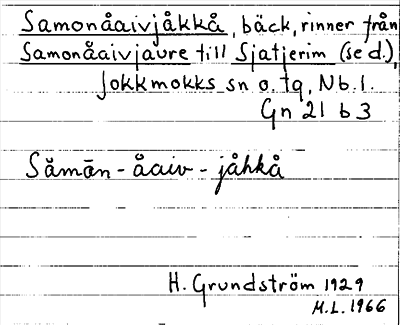 Samonåaivjåkkå, bäck, rinner från
Samonåaivjaure till Sjatjerim (se d.),
Jokkmokks sn o. tg, Nb. l.
Gn 21 b 3
Såmōn - åaiv - jåhkå
H. Grundström 1929
M.L. 1966